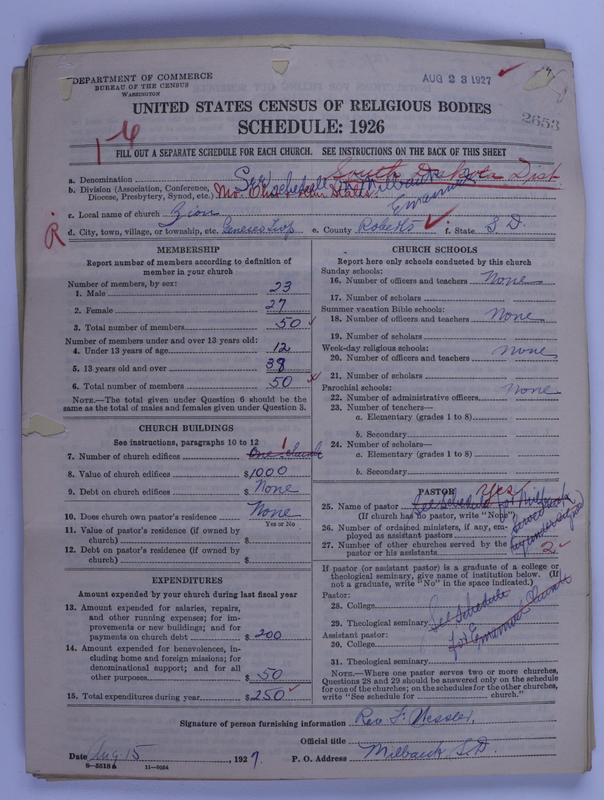 DEPARTMENT OF COMMERCE
BUREAU OF THE CENSUS
WASHINGTON
AUG 23 1927
2653
UNITED STATES CENSUS OF RELIGIOUS BODIES
SCHEDULE: 1926
FILL OUT A SEPARATE SCHEDULE FOR EACH CHURCH. SEE INSTRUCTIONS ON THE BACK OF THIS SHEET
a. Denomination See schedule for Milbank South Dakota Dist.
b. Division (Association, Conference, Diocese, Presbytery, Synod, etc.) Mo. Ohio & other States. Emanuel
c. Local name of church Zion
d. City, town, village, or township, etc. Geneseo Twp e. County Roberts f. State S D.
MEMBERSHIP
Report number of members according to definition of
member in your church
Number of members, by sex:
1. Male 23
2. Female 27
3. Total number of members 50
Number of members under and over 13 years old:
4. Under 13 years of age 12
5. 13 years old and over 38
6. Total number of members 50
NOTE.—The total given under Question 6 should be
same as the total of males and females given under Question 3.
CHURCH BUILDINGS
See instructions, paragraphs 10 to 12
7. Number of church edifices One church 1
8. Value of church edifices $1000
9. Debt on church edifices $ None
10. Does church own pastor's residence None
Yes or No
11. Value of pastor's residence (if owned by
church) $
12. Debt on pastor's residence (if owned by
church) $
EXPENDITURES
Amount expended by your church during last fiscal year
13. Amount expended for salaries, repairs,
and other running expenses; for im-
provements or new buildings; and for
payments on church debt $ 200
14. Amount expended for benevolences, in-
cluding home and foreign missions; for
denominational support; and for all
other purposes $ 50
15. Total expenditures during year $ 250
CHURCH SCHOOLS
Report here only schools conducted by this church
Sunday schools:
16. Number of officers and teachers None
17. Number of scholars
Summer vacation Bible schools:
18. Number of officers and teachers None
19. Number of scholars
Week-day religious schools:
20. Number of officers and teachers None
21. Number of scholars
Parochial schools: None
22. Number of administrative officers
23. Number of teachers—
a. Elementary (grades 1 to 8)
b. Secondary
24. Number of scholars—
a. Elementary (grades 1 to 8)
b. Secondary
PASTOR
25. Name of pastor See Schedule for Milbank Yes
(If church has no pastor, write "None")
26. Number of ordained ministers, if any, em-
ployed as assistant pastors
27. Number of other churches served by the
pastor or his assistants 2
If pastor (or assistant pastor) is a graduate of a college or
theological seminary, give name of institution below. (If
not a graduate, write "No" in the space indicated.)
Pastor:
28. College
29. Theological seminary See Schedule
Assistant pastor: for Emanuel Church
30. College
31. Theological seminary
NOTE.—Where one pastor serves two or more churches,
Questions 28 and 29 should be answered only on the schedule
for one of the churches; on the schedules for the other churches,
write "See schedule for church."
Signature of person furnishing information Rev. F. Wessler,
Official title
Date Aug. 15, 1927. P. O. Address Milbank, S. D.
8—5518a 11—9054